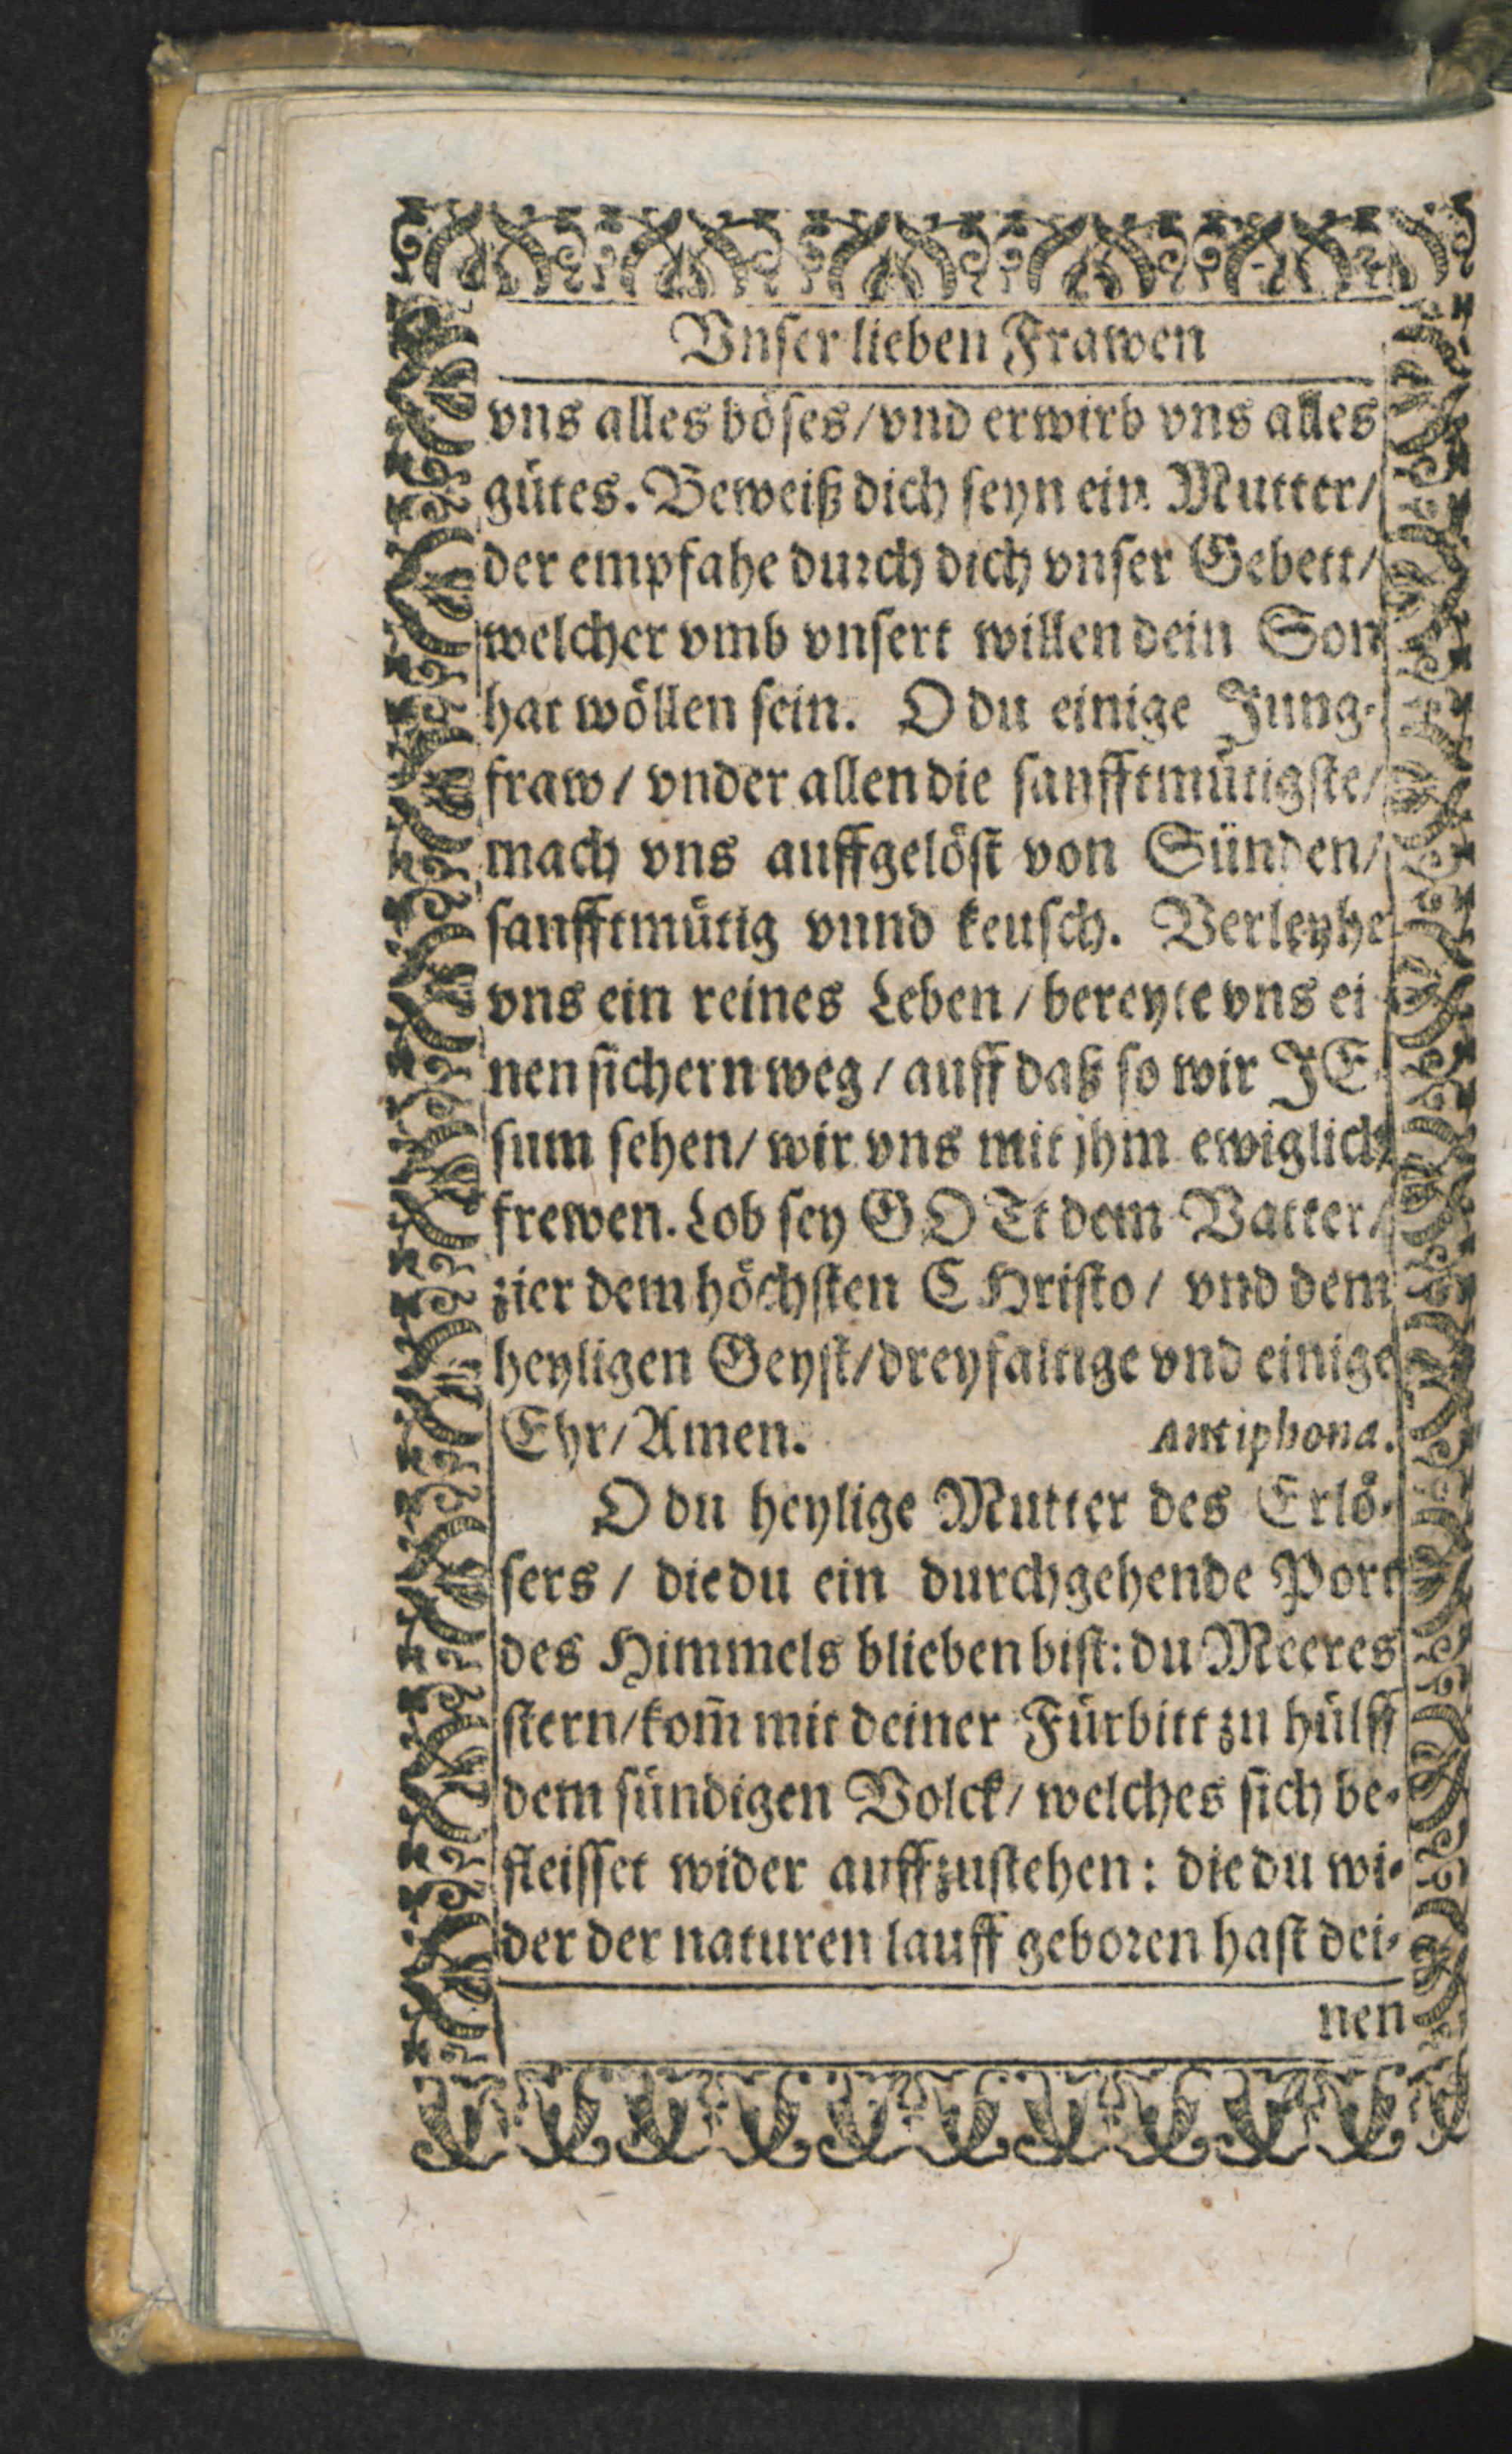 Vnser lieben Frawen
vns alles böses/vnd erwirb vns alles
gütes. Beweiß dich seyn ein Mutter/
der empfahe durch dich vnser Gebett/
welcher vmb vnsert willen dein Son
hat wöllen sein. O du einige Jung-
fraw/ vnder allen die sanfftmütigste/
mach vns auffgelöst von Sünden/
sanfftmütig vnnd keusch. Verleyhe
vns ein reines Leben/ bereyte vns ei
nen sichern weg/ auff daß so wir JE
sum sehen/ wir vns mit jhm ewiglich
frewen. Lob sey GOTt dem Vatter/
zier dem höchsten CHristo/ vnd dem
heyligen Geyst/dreyfaltige vnd einige
Ehr/Amen. Antiphona.
O du heylige Mutter des Erlö-
sers/ die du ein durchgehende Port
des Himmels blieben bist: du Meeres
stern/kom̄ mit deiner Fürbitt zu hülff
dem sündigen Volck/ welches sich be-
fleisset wider auffzustehen: die du wi-
der der naturen lauff geboren hast dei-
nen